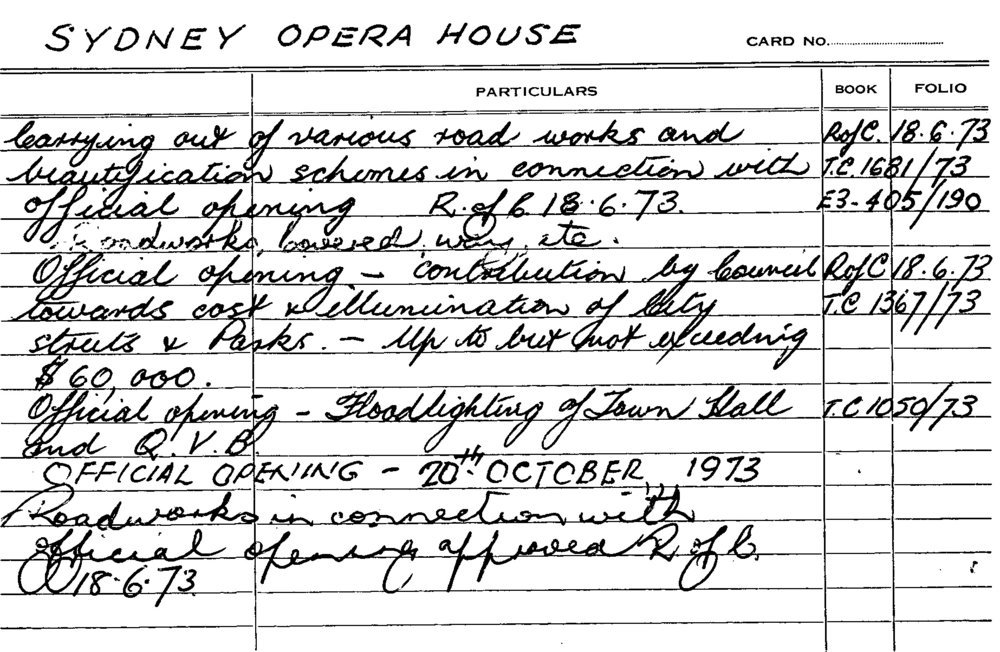 SYDNEY OPERA HOUSE CARD NO.
PARTICULARS BOOK FOLIO
Carrying out of various road works and R of C. 18.6.73
beautification schemes in connection with T.C. 1681/73
official opening R. of C. 18.6.73. E3-405/190
Roadworks, covered way, etc.
Official opening - contribution by Council R of C 18.6.73
towards cost & illumination of City T.C 1367/73
streets & Parks. - Up to but not exceeding
$60,000.
Official opening - Floodlighting of Town Hall T.C 1050/73
and Q.V.B.
OFFICIAL OPENING - 20th OCTOBER, 1973
Roadworks in connection with
official opening approved R of C.
18.6.73